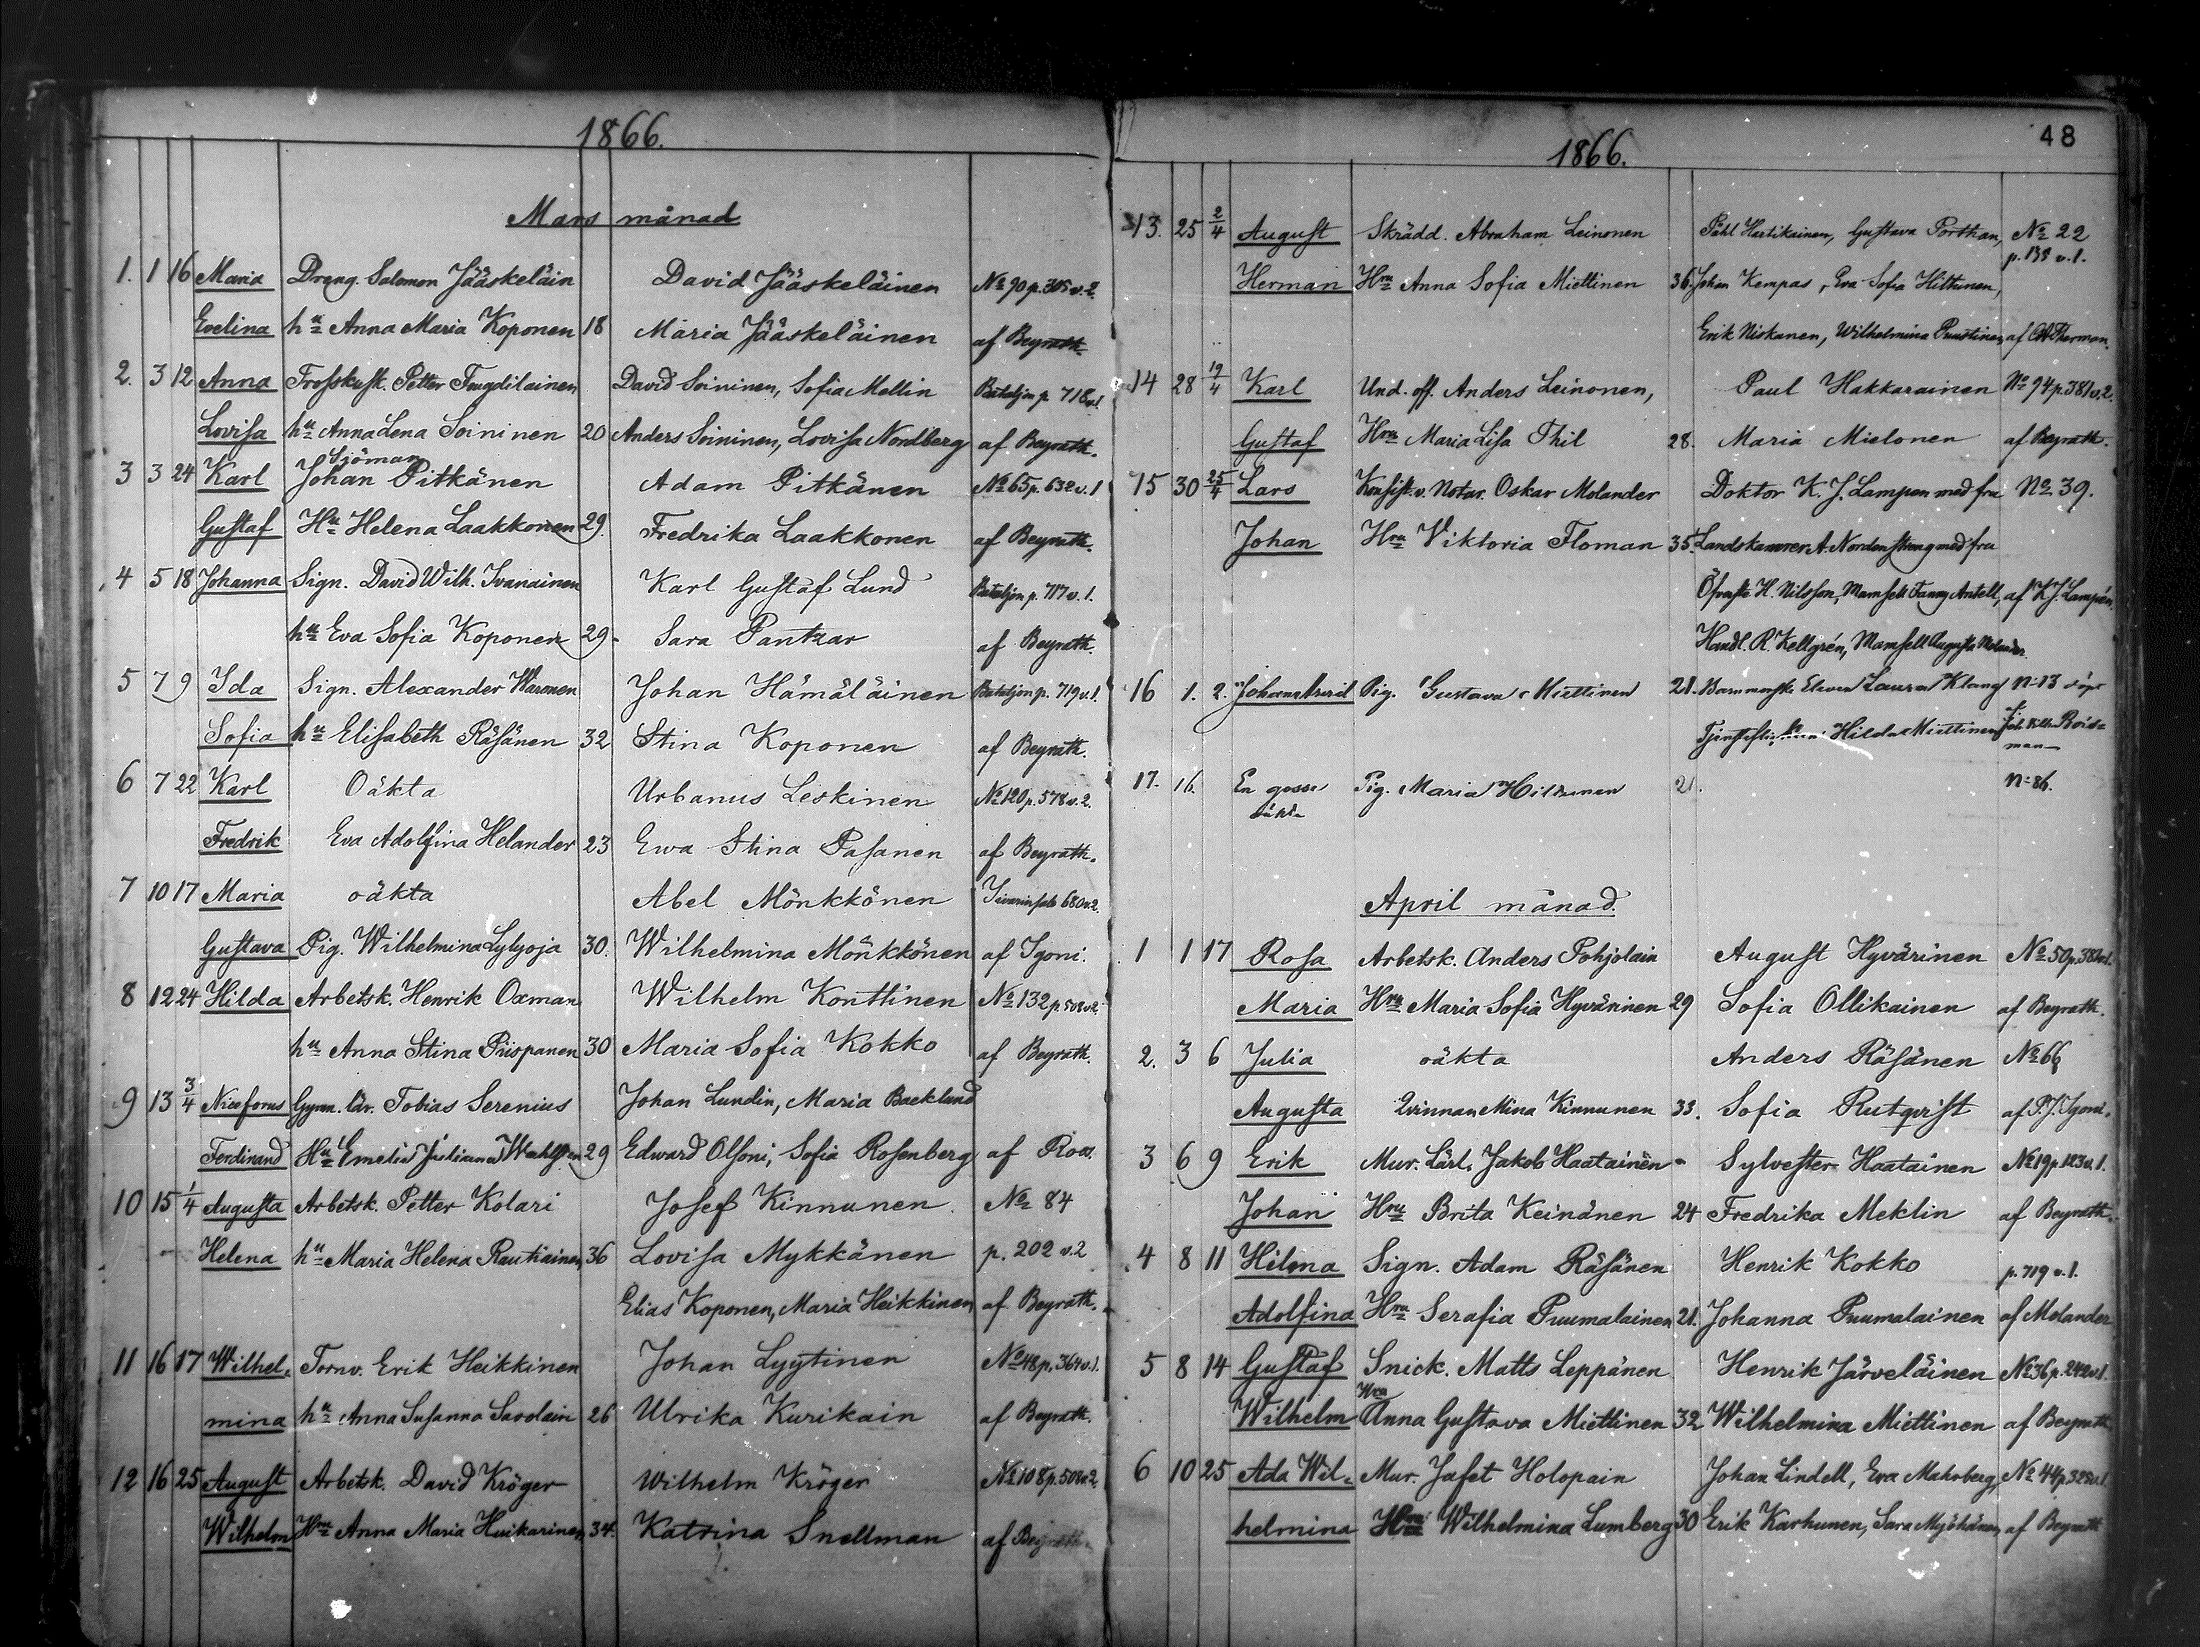 1866.
Mars månad
1. 1 16 Maria Dräng. Salomon Jääskeläin David Jääskeläinen No 90 p. 305 v. 2.
Evelina hu Anna Maria Koponen 18 Maria Jääskeläinen af Beyrath.
2. 3 12 Anna Trosskusk. Petter David Soininen, Sofia Mellin Bataljon p. 718 v. 1
Lovisa hu Anna Lena Soininen 20 Anders Soininen, Lovisa Nordberg af Beyrath.
Sjöman
3 3 24 Karl Johan Pitkänen Adam Pitkänen No 65 p. 632 v. 1
Gustaf Hu Helena Laakkonen 29. Fredrika Laakkonen af Beyrath.
4 5 18 Johanna Sign. David Wilh. Ivanainen Karl Gustaf Lund Bataljon p. 717 v. 1.
hu Eva Sofia Koponen 29. Sara Pantzar af Beyrath.
5 7 9 Ida Sign. Alexander Waronen Johan Hämäläinen Bataljon p. 719 v. 1.
Sofia hu Elisabeth Räsänen 32 Stina Koponen af Beyrath.
6 7 22 Karl Oäkta Urbanus Leskinen No 120 p. 578 v. 2.
Fredrik Eva Adolfina Helander 23 Ewa Stina Pasanen af Beyrath.
7 10 17 Maria oäkta Abel Mönkkönen 680 v. 2.
Gustava Pig. Wilhelmina Lylyoja 30. Wilhelmina Mönkkönen af Igoni.
8 12 24 Hilda Arbetsk. Henrik Oxman Wilhelm Konttinen No 132 p. 508 v. 2.
hu Anna Stina Piispanen 30 Maria Sofia Kokko af Beyrath.
9 13 3/4 Niceforus Gymn. lär. Tobias Serenius Johan Lundin, Maria Backlund
Ferdinand Hu Emelia Juliana 29 Edward Olsoni, Sofia Rosenberg af Roos
10 15 1/4 Augusta Arbetsk. Petter Kolari Josef Kinnunen No 84
Helena hu Maria Helena Rautiainen 36 Lovisa Mykkänen p. 202 v. 2
Elias Koponen, Maria Heikkinen af Beyrath.
11 16 17 Wilhel- Tornv. Erik Heikkinen Johan Lyytinen No 48 p. 364 v. 1.
mina hu Anna Susanna Savolain 26 Ulrika Kurikain af Beyrath.
12 16 25 August Arbetsk. David Kröger Wilhelm Kröger No 108 p. 500 v. 2
Wilhelm Hru Anna Maria Huikarinen 34. Katrina Snellman af Beyrath.
1866.
48
13. 25 2/4 August Skrädd. Abraham Leinonen Påhl Hartikainen, Gustava Porthan, No 22
p. 138 v. 1.
Herman Hru Anna Sofia Miettinen 36. Johan Kempas, Eva Sofia Hiltunen,
Erik Niskanen, Wilhelmina Puustinen
14 28 19/4 Karl Und. off. Anders Leinonen, Paul Hakkarainen No 94 p. 381 v. 2.
Gustaf Hru Maria Lisa Thil 28. Maria Mielonen af Beyrath.
15 30 25/4 Lars Konsist. v. Notar. Oskar Molander Doktor K. J. Lampen med fru No 39.
Johan Hru Viktoria Floman 35. Landskamrer A. Nordenstreng med fru
Öfverste H. Nilsson, Mamsell Fanny Antell, af K. J. Lampén,
Handl. R. Kellgrén, Mamsell Augusta Molander
16 1. 2. Johan Pig. Gustava Miettinen 21. Barnmorske Eleven Laura Klang No 13
Hilda Miettinen
17. 16. En gosse Pig. Maria Hiltunen 21. No 86.
oäkta
April månad.
1 1 17 Rosa Arbetsk. Anders Pohjolain August Hyvärinen No 50 p. 380 v. 1.
Maria Hru Maria Sofia Hyvärinen 29 Sofia Ollikainen af Beyrath.
2. 3 6 Julia oäkta Anders Räsänen No 66
Augusta Qvinnan Mina Kinnunen 33. Sofia Rutqvist af P. J. Igoni.
3 6 9 Erik Mur. Lärl. Jakob Haatainen Sylvester Haatainen No 19 p. 123 v. 1.
Johan Hru Brita Keinänen 24 Fredrika Meklin af Beyrath.
4 8 11 Hilma Sign. Adam Räsänen Henrik Kokko p. 719 v. 1.
Adolfina Hru Serafia Puumalainen 21. Johanna Puumalainen af Molander
5 8 14 Gustaf Snick. Matts Leppänen Henrik Järveläinen No 36 p. 242 v. 1.
Hru
Wilhelm Anna Gustava Miettinen 32 Wilhelmina Miettinen af Beyrath
6 10 25 Ada Wil- Mur. Jafet Holopain Johan Lindell, Eva Mahrberg, No 44 p. 325 v. 1.
helmina Hru Wilhelmina Lumberg 30 Erik Karhunen, Sara Myöhänen af Beyrath